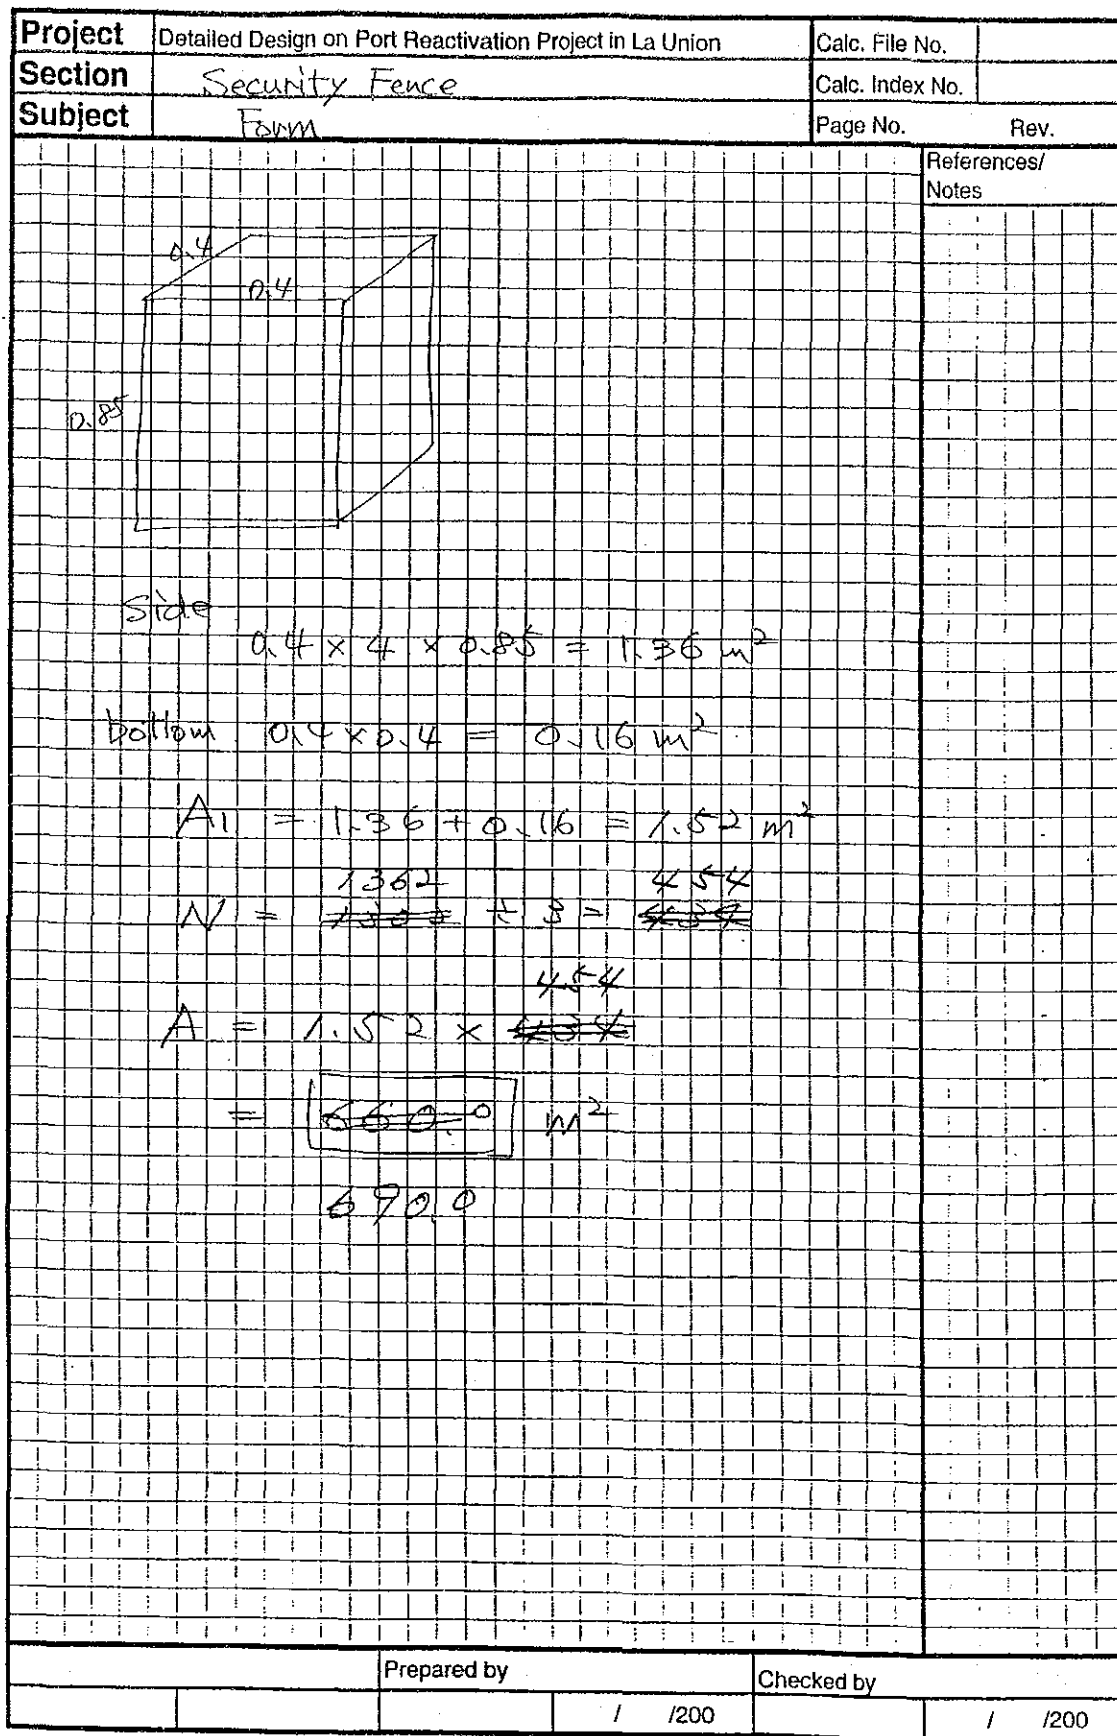 Project Detailed Design on Port Reactivation Project in La Union Calc. File No.
Section Security Fence Calc. Index No.
Subject Form Page No. Rev.
References/
Notes
0.4
0.4
0.85
Side
0.4 × 4 × 0.85 = 1.36 m²
bottom 0.4 × 0.4 = 0.16 m²
A1 = 1.36 + 0.16 = 1.52 m²
1362 454
N = ÷ 3 =
454
A = 1.52 ×
= 660.0 m²
690.0
Prepared by Checked by
/ /200 / /200